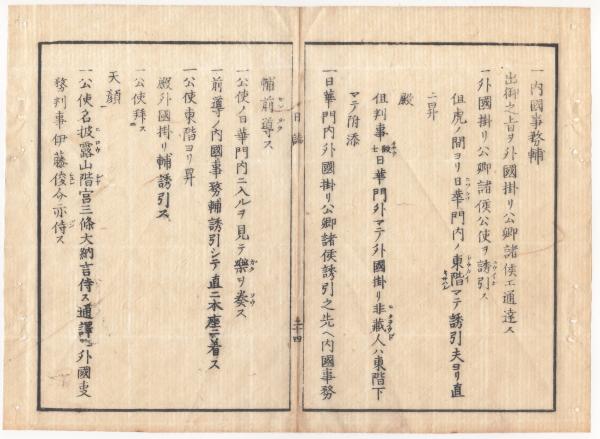 一内國事務輔
出御之旨ヲ外國掛リ公卿諸侯エ通達ス
一外國掛リ公卿諸侯公使ヲ誘引ス
但虎ノ間ヨリ日華門内ノ東階マテ誘引夫ヨリ直
ニ昇
殿
但判事ハ日華門外マテ外國掛リ非蔵人ハ東階下
マテ附添
一日華門内外國掛リ公卿諸侯誘引之先ヘ内國事務
輔前導ス
一公使ノ日華門内ニ入ルヲ見テ樂ヲ奏ス
一前導ノ内國事務輔誘引シテ直ニ本座ニ着ス
一公使東階ヨリ昇
殿外國掛リ輔誘引ス
一公使拜ス
天顔
一公使名披露山階宮三條大納言侍ス通譯ハ外國事
務判事伊藤俊介亦侍ス
日誌